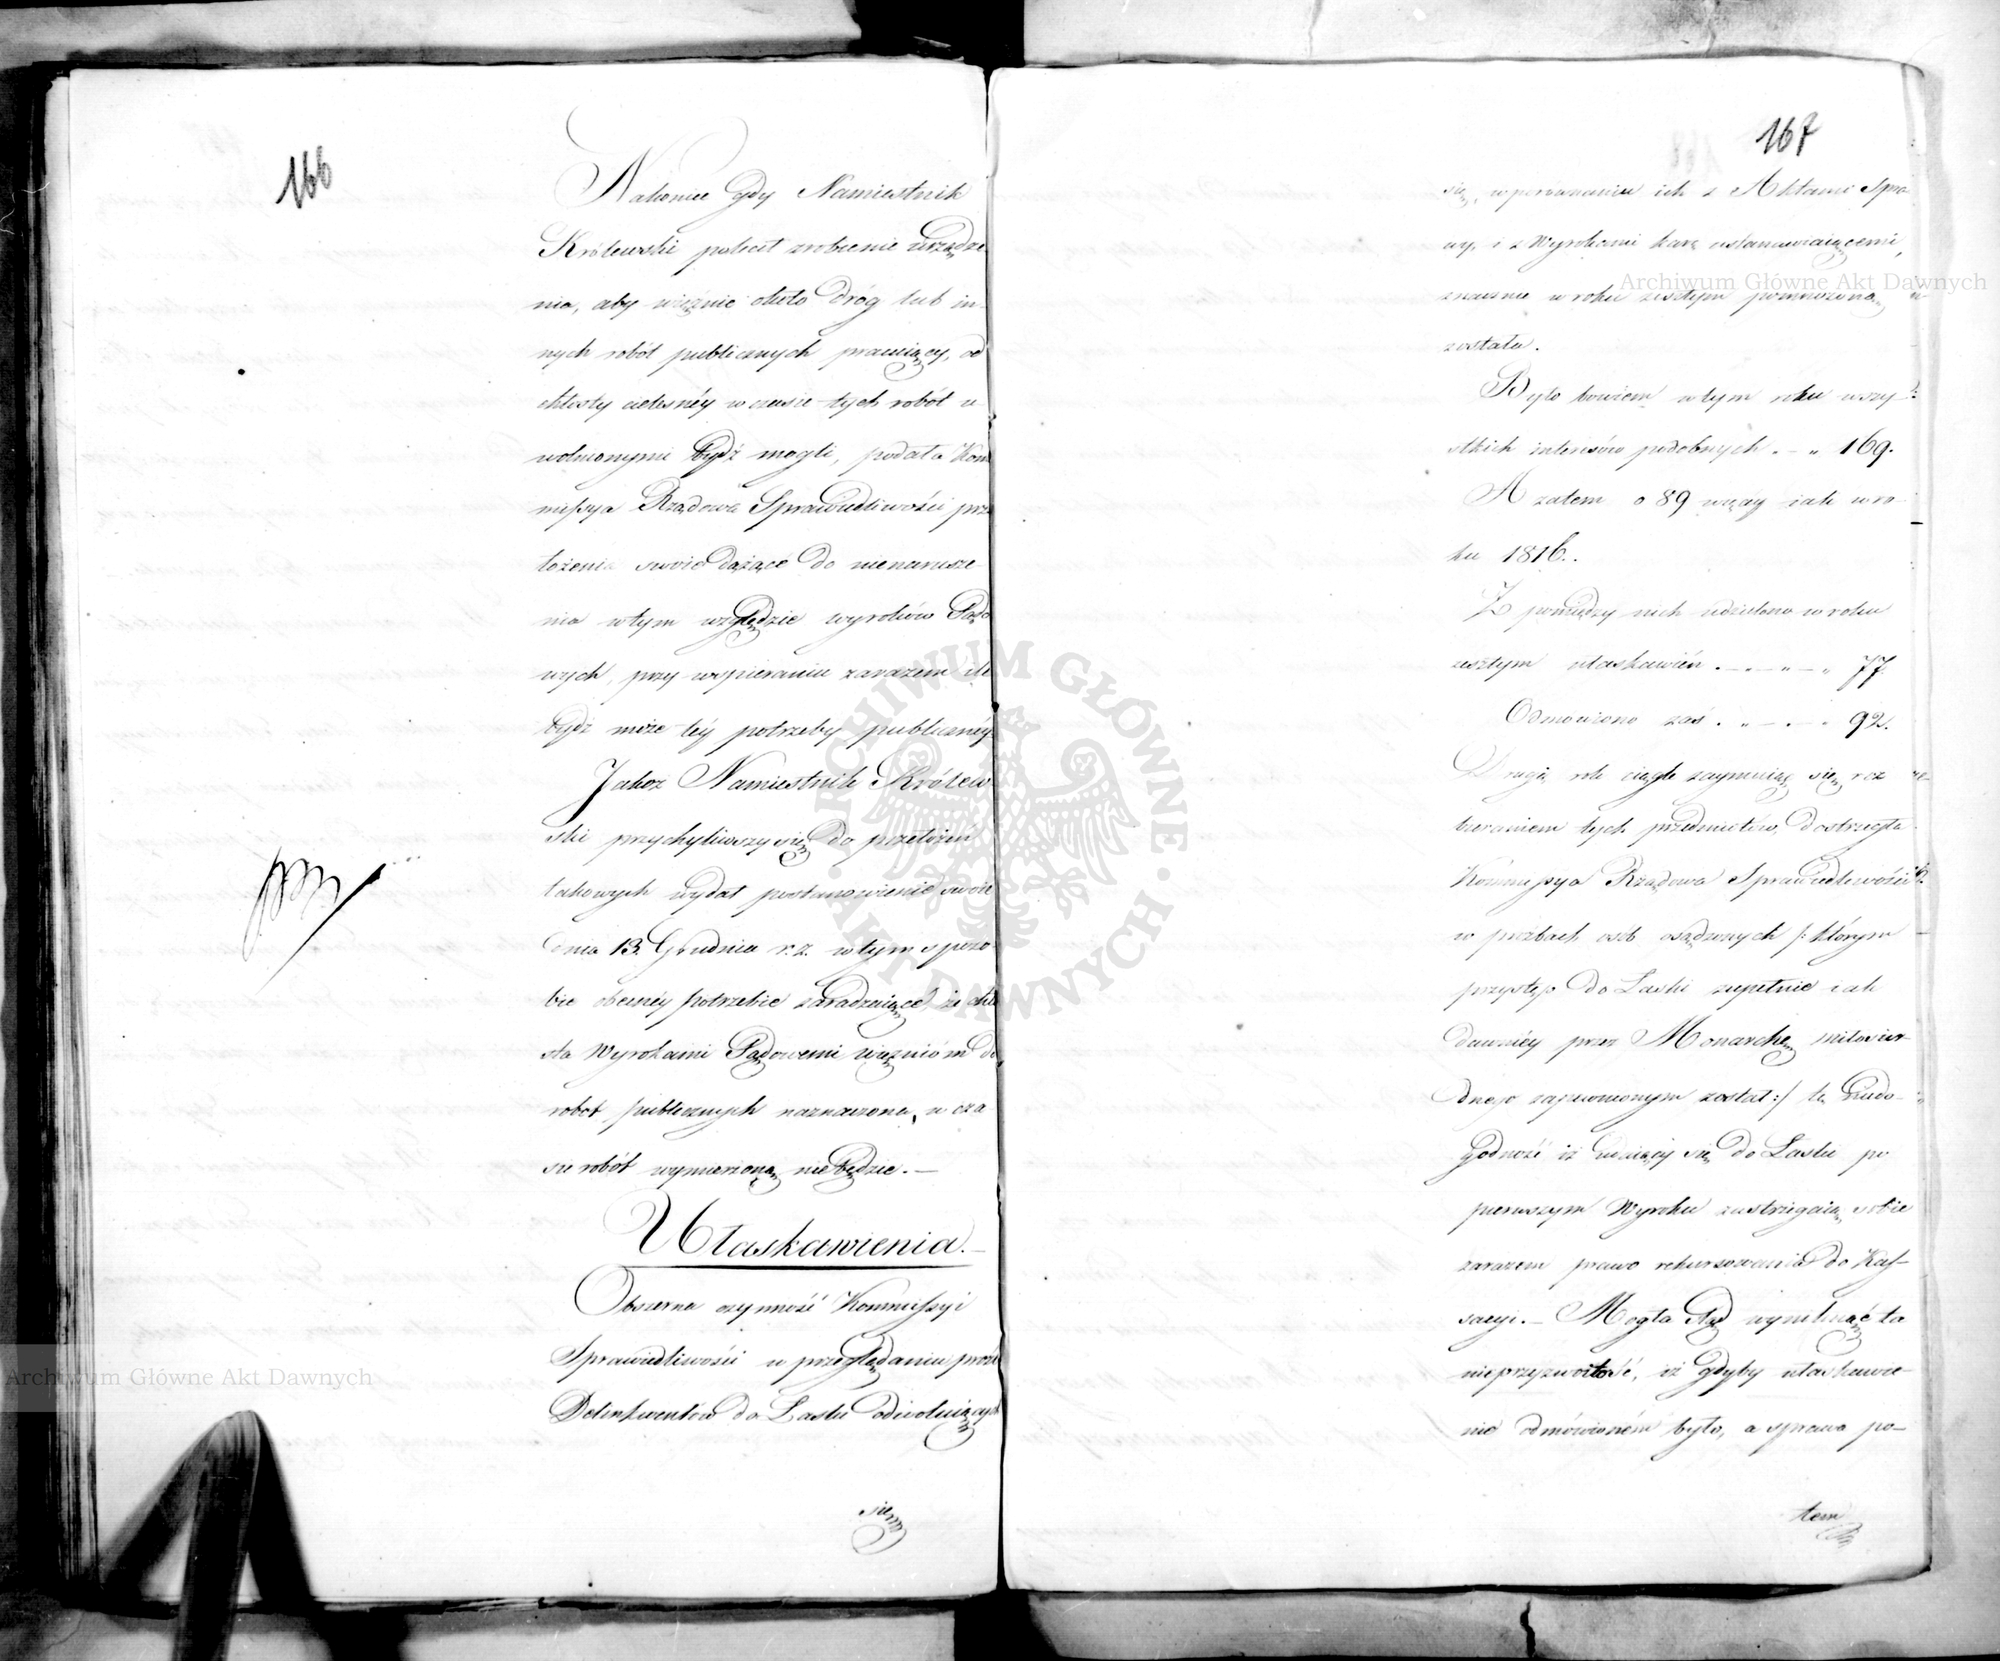 166
Nakoniec gdy Namiestnik
Królewski polecił zrobienie urządze-
nia, aby więźnie około dróg lub in-
nych robót publicznych pracuiący, od
chłosty cielesnéy w czasie tych robót u
wolnionymi bydź mogli, podała Kom
missya Rządowa Sprawiedliwości prze
łożenia swoie dążące do nienarusze-
nia w tym względzie wyroków Sądo
wych, przy wspieraniu zarazem ile
bydź może téy potrzeby publicznéy.
Jakoż Namiestnik Królew
ski przychyliwszy się do przełożeń
takowych wydał postanowienie swoie
dnia 13. Grudnia r. z. w tym sposo-
bie obecnéy potrzebie zaradzaiące, że chło
sta Wyrokami Sądowemi więzniom do
robot publicznych naznaczona, w cza
sie robót wymierzoną nie będzie. —
Ułaskawienia. —
Obszerna czynność Kommissyi
Sprawiedliwości w przeglądaniu proźb
Delinkwentów do Łaski odwołuiących
się
167
się, w porównaniu ich z Aktami Spra
wy, i z Wyrokami karę ustanawiaiącemi,
znacznie w roku zeszłym pomnożoną
została.
Było bowiem w tym roku wszy-
stkich interesów podobnych . – „ 169.
A zatem o 89 więcéy iak w ro-
ku 1816..
Z pomiędzy nich udzielono w roku
zeszłym ułaskawień . – – „ – „ 77.
Odmówiono zaś . „ – . – „ 92.
Drugi rok ciągle zaymuiąc się roz
bieraniem tych przedmiotów, dostrzegła
Kommissya Rządowa Sprawiedliwości
w proźbach osób osądzonych /: którym
przystęp do Łaski zupełnie iak
dawniéy przez Monarchę miłosier-
dnego zapewnionym został :/ tę niedo-
godność iż udaiący się do Łaski po
pierwszym Wyroku zastrzegaią sobie
zarazem prawo rekursowania do Kas-
sacyi. — Mogła stąd wyniknąć ta
nieprzyzwoitość, iż gdyby ułaskawie-
nie odmówioném było, a sprawa po-
tem
Archiwum Główne Akt Dawnych
Archiwum Główne Akt Dawnych
ARCHIWUM GŁÓWNE AKT DAWNYCH